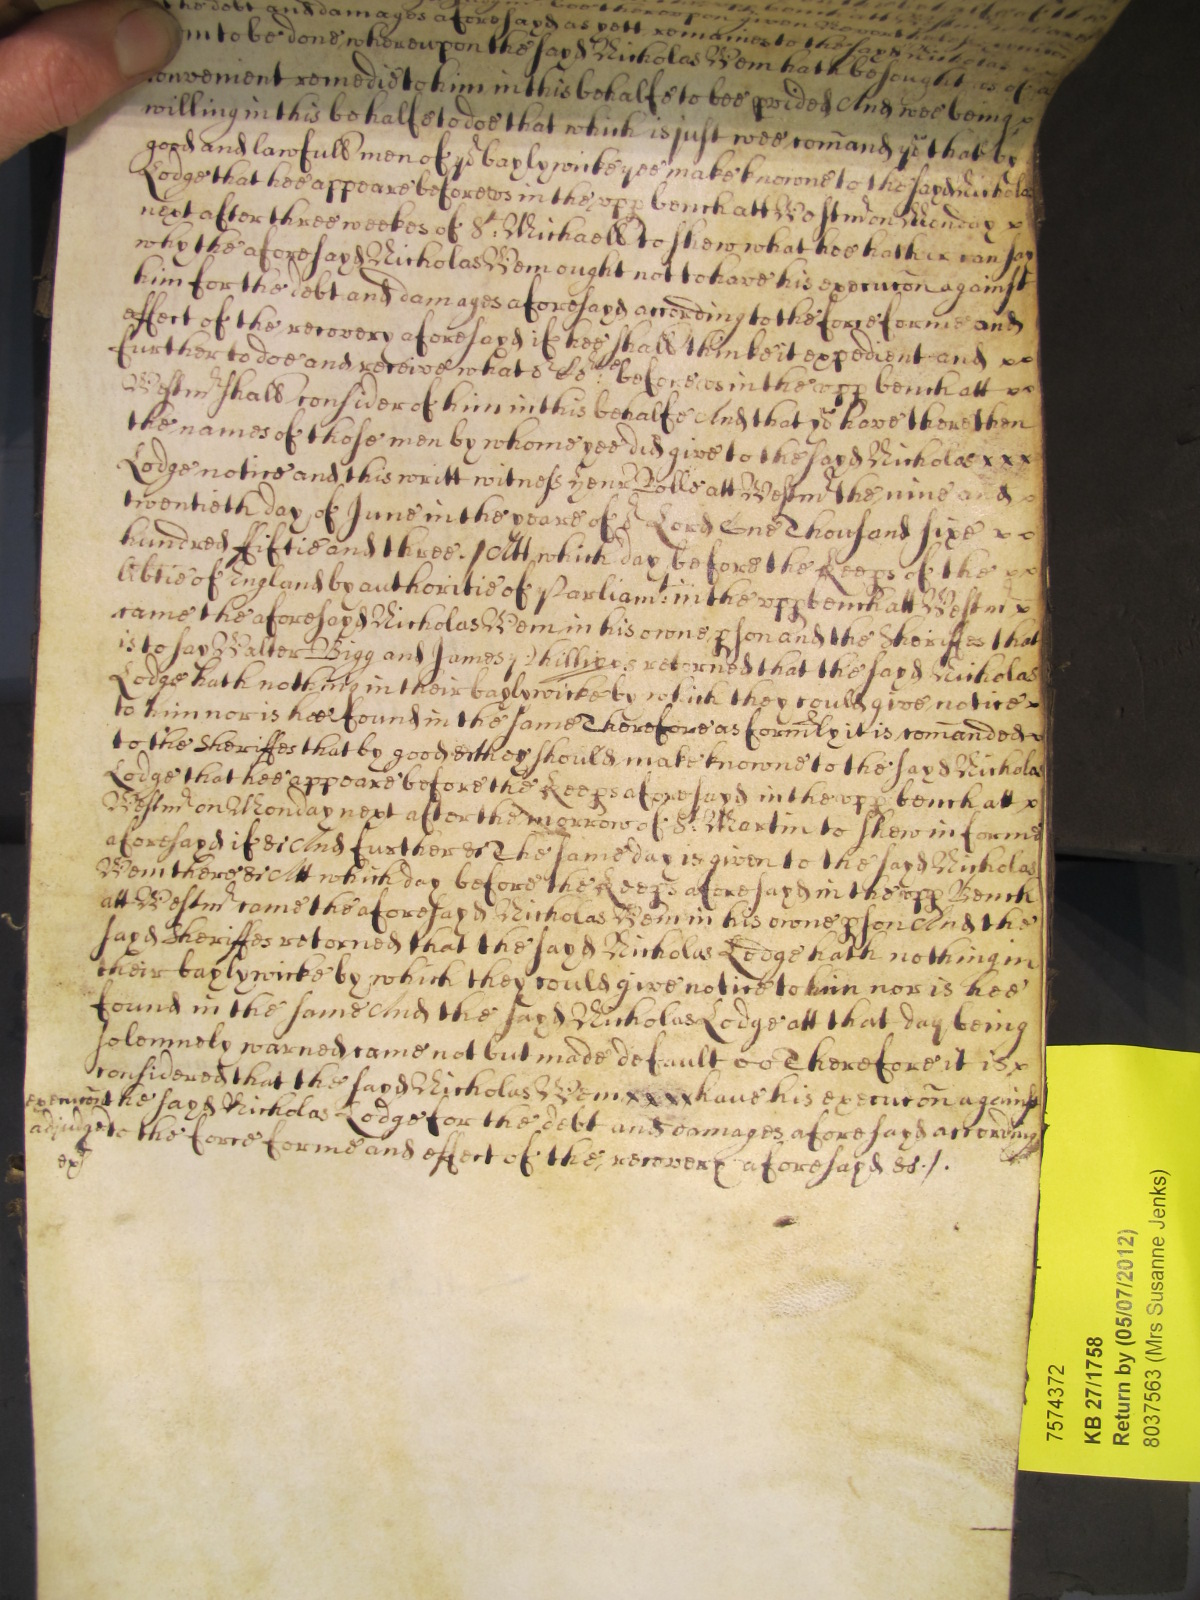 the debt and damages aforesayd as yett remaines to the sayd Nicholas
to be done, wherewpon the sayd Nicholas Wem hath besought us of a
convenient remedie to him in this behalfe to bee pvided And wee being x
willing in this behalfe to doe that which is just wee comand yo that by
good and lawfull men of yor baylywicke yee make knowne to the sayd Nicholas
Lodge that hee appeare before us in the upp bench att Westmr on Monday x
next after three weekes of St. Michaell to shew what hee hath or can say
why the aforesayd Nicholas Wem ought not to have his execucon against
him for the debt and damages aforesayd according to the force forme and
effect of the recovery aforesayd if hee shall thinke it expedient and xx
further to doe and receive what before us in the upp bench att xx
Westmr shall consider of him in this behalfe And that yo have there then
the names of those men by whome yee did give to the sayd Nicholas xxx
Lodge notice and this writt witness Henr Rolle att Westmr the nine and x
twentieth day of June in the yeare of or Lord One Thousand sixe xx
hundred ffiftie and three./ Att which day before the Keeps of the xx
libtie of England by authoritie of Parliamt. in the upp bench att Westmr x
came the aforesayd Nicholas Wem in his owne pson and the Sheriffes that
is to say Walter Bigg and James Phillipps retorned that the sayd Nicholas
Lodge hath nothing in their baylywicke by which they could give notice x
to him nor is hee found in the same Therefore as formly it is comanded x
to the Sheriffes that by good &c they should make knowne to the sayd Nicholas
Lodge that hee appeare before the Keeps aforesayd in the upp bench att x
Westmr on Monday next after the morrow of St. Martin to shew in forme
aforesayd if &c And further &c The same day is given to the sayd Nicholas
Wem there &c Att which day before the Keeps aforesayd in the upp Bench
att Westmr came the aforesayd Nicholas Wem in his owne pson And the
sayd Sheriffes retorned that the sayd Nicholas Lodge hath nothing in
their baylywicke by which they could give notice to him nor is hee
found in the same And the sayd Nicholas Lodge att that day being
solemnely warned came not but made default Therefore it is x
considered that the sayd Nicholas Wem xxxx have his execucon against
execucon the sayd Nicholas Lodge for the debt and damages aforesayd according
adjudge to the force forme and effect of the recovery aforesayd &c./.
7574372
KB 27/1758
Return by (05/07/2012)
8037563 (Mrs Susanne Jenks)